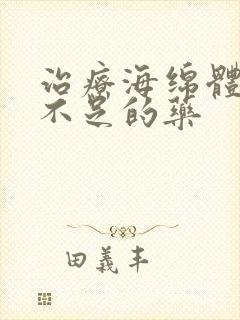 治療海绵體
不足的藥
田義丰